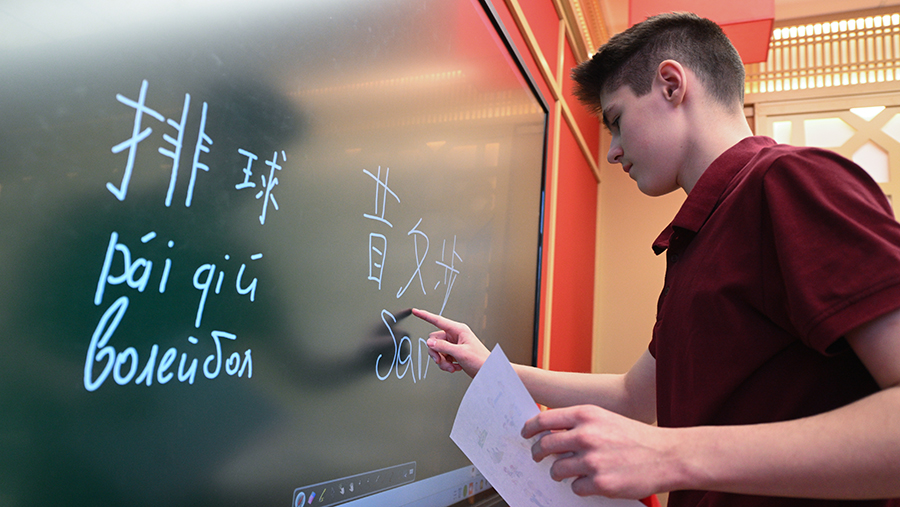 排球
pái qiú
волейбол
散步
San